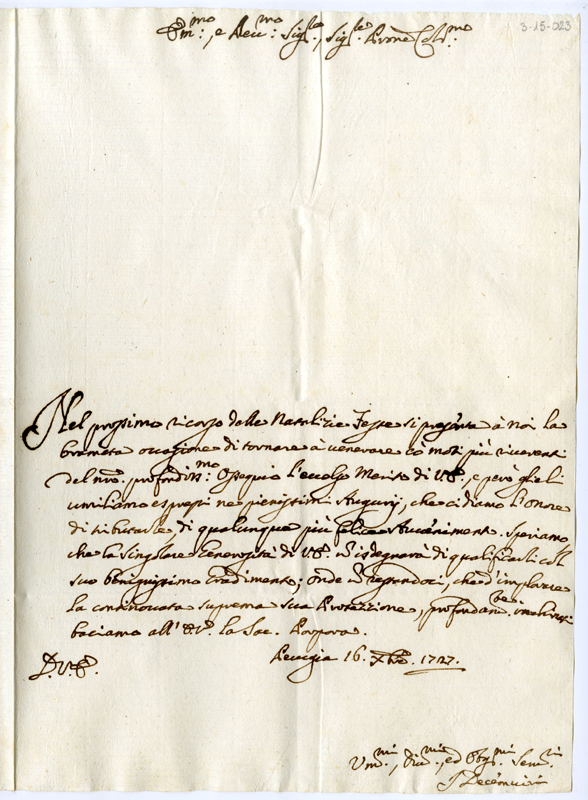 3-15-023
Em:mo, e Reu:mo Sig.re, Sig.re Prone Col:mo
Nel prossimo ricorso delle Natalizie Feste si presenta à noi la
bramata occasione di tornare à venerare co' moti più riverenti
del nro. profondiss:mo Ossequio l'eccelso Merito di V.E., e però glieli
umiliamo espressi ne' pienissimi Augurij, che ci diamo l'onore
di tributarle, di qualunque più felice Avvenimento. Speriamo
che la singolare Generosità di V.E. isdegnarà di qualificarli coll
suo benignissimo Gradimento; onde restandoci, che d'implorare
la continouata suprema sua Protezzione, profondam.te
baciamo all' E.V. la Sac. Porpora.
D.V.E. Perugia 16. Xbre. 1727.
Um:mi, Diu:mi, ed Obg:mi Seru:ri
I Decemuiri